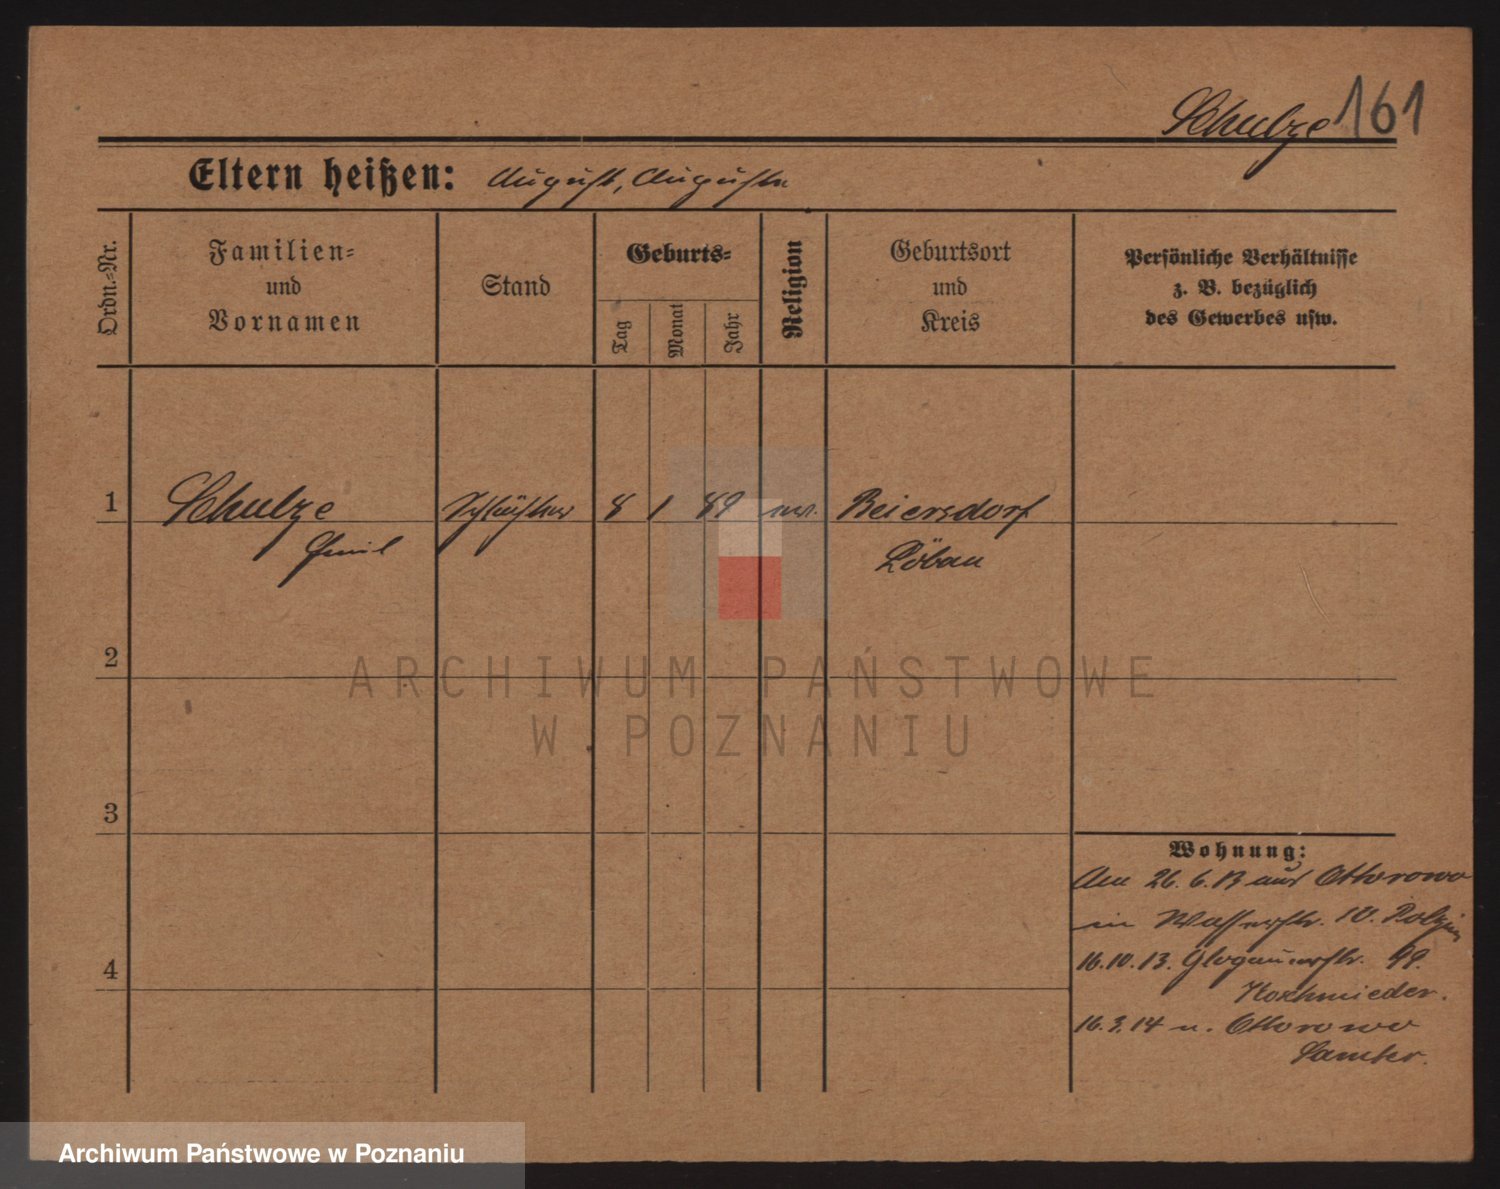 Schulze 161
Eltern heißen: August, Auguste
Ordn.-Nr.
Familien-
und
Vornamen
Stand
Geburts-
Tag
Monat
Jahr
Religion
Geburtsort
und
Kreis
Persönliche Verhältnisse
z. B. bezüglich
des Gewerbes usw.
1 Schulze 8 1 89 Beiersdorf
Emil Löbau
2
ARCHIWUM PAŃSTWOWE
W POZNANIU
3
Wohnung:
26. 6. 13 aus Ottorowo
in Wasserstr.
16.10.13. Glogauerstr. 99.
Koschmieder.
16.3.14 n. Ottorowo
Samter.
4
Archiwum Państwowe w Poznaniu